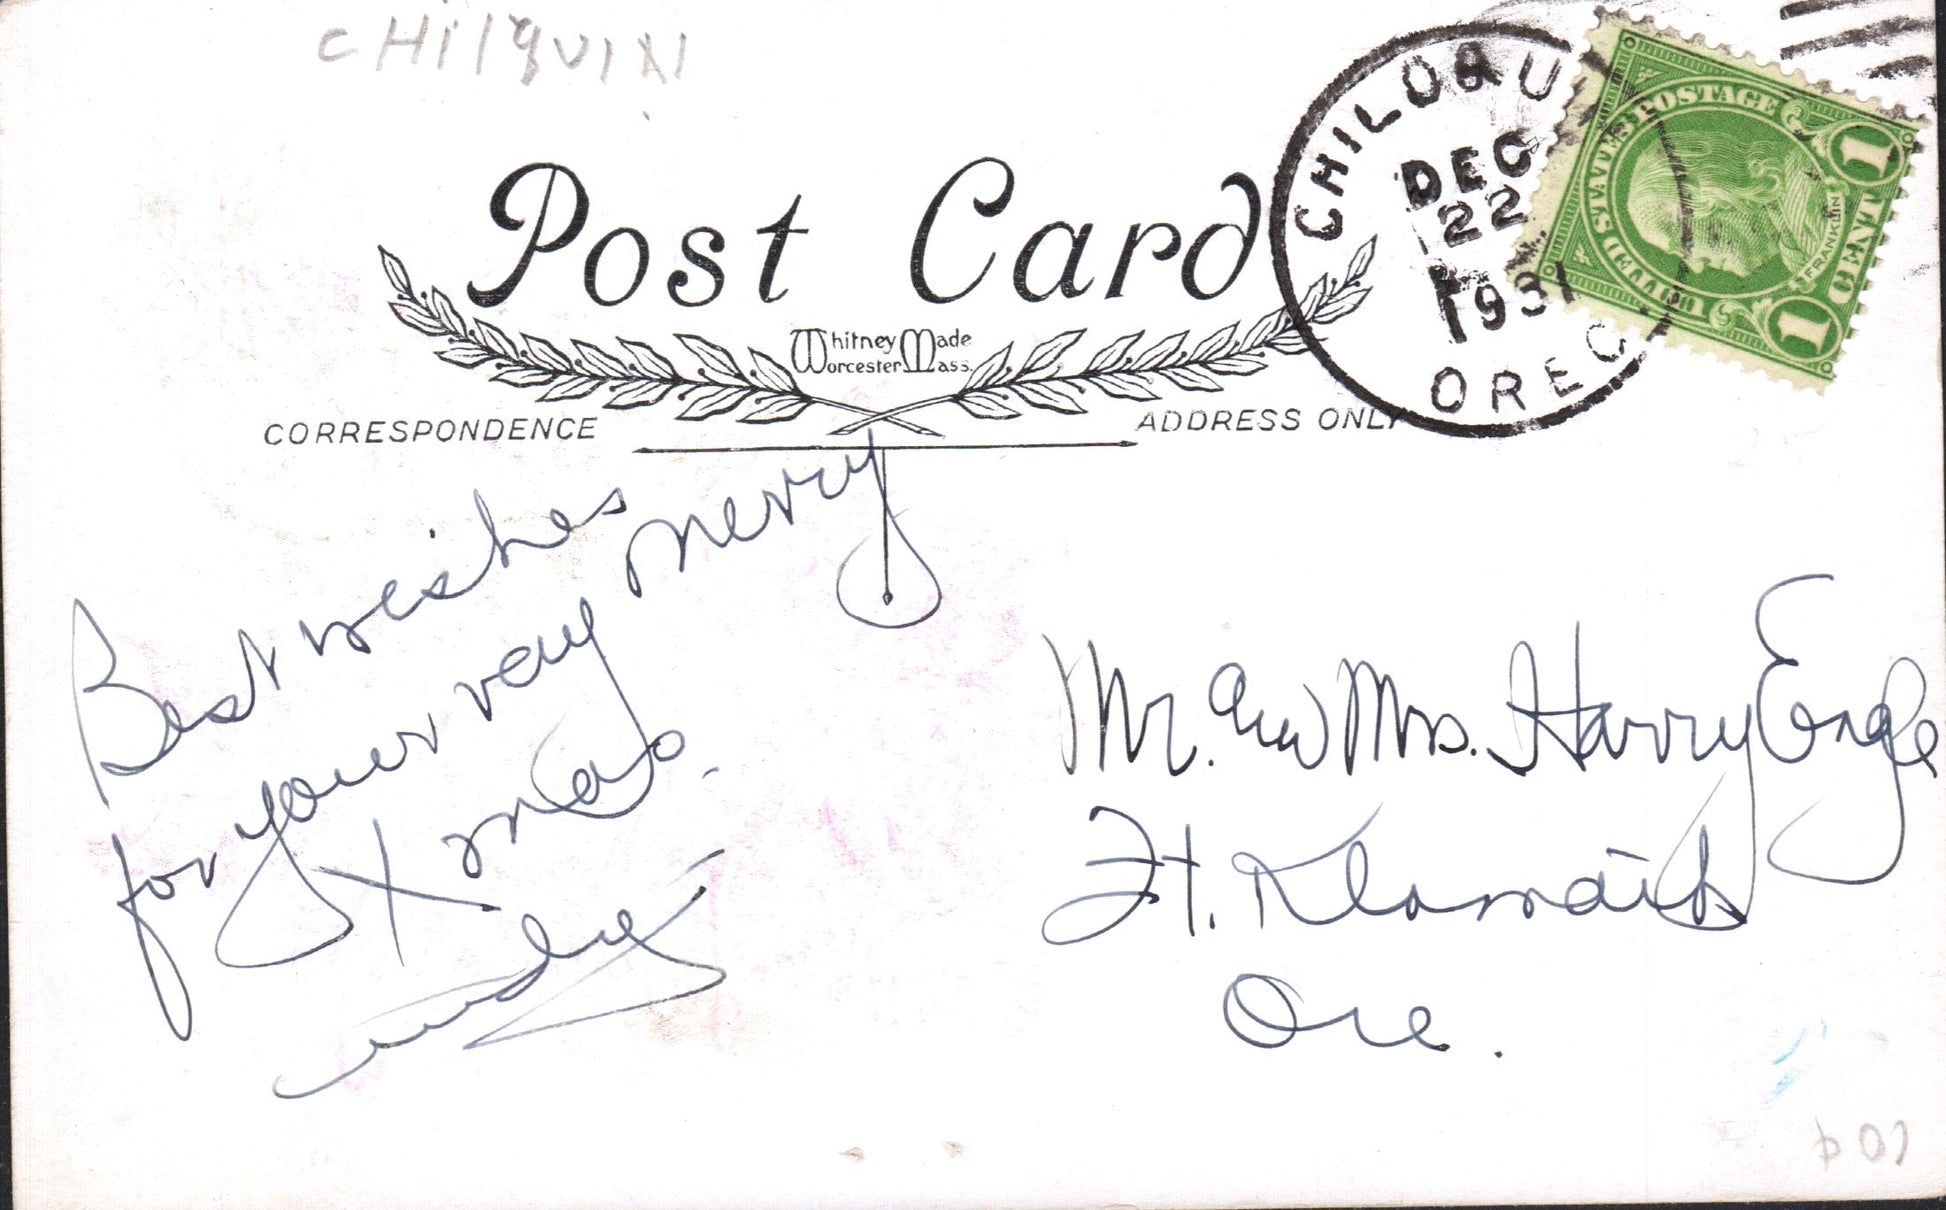 CHILQUIN
Post Card
Whitney Made
Worcester Mass.
CORRESPONDENCE
ADDRESS ONLY
CHILOQU
DEC
22
1931
OREG
UNITED STATES POSTAGE
FRANKLIN
1 CENT 1
Best wishes
for your very merry
Xmas.
Mr. and Mrs. Harry Engle
Ft. Klamath
Ore.